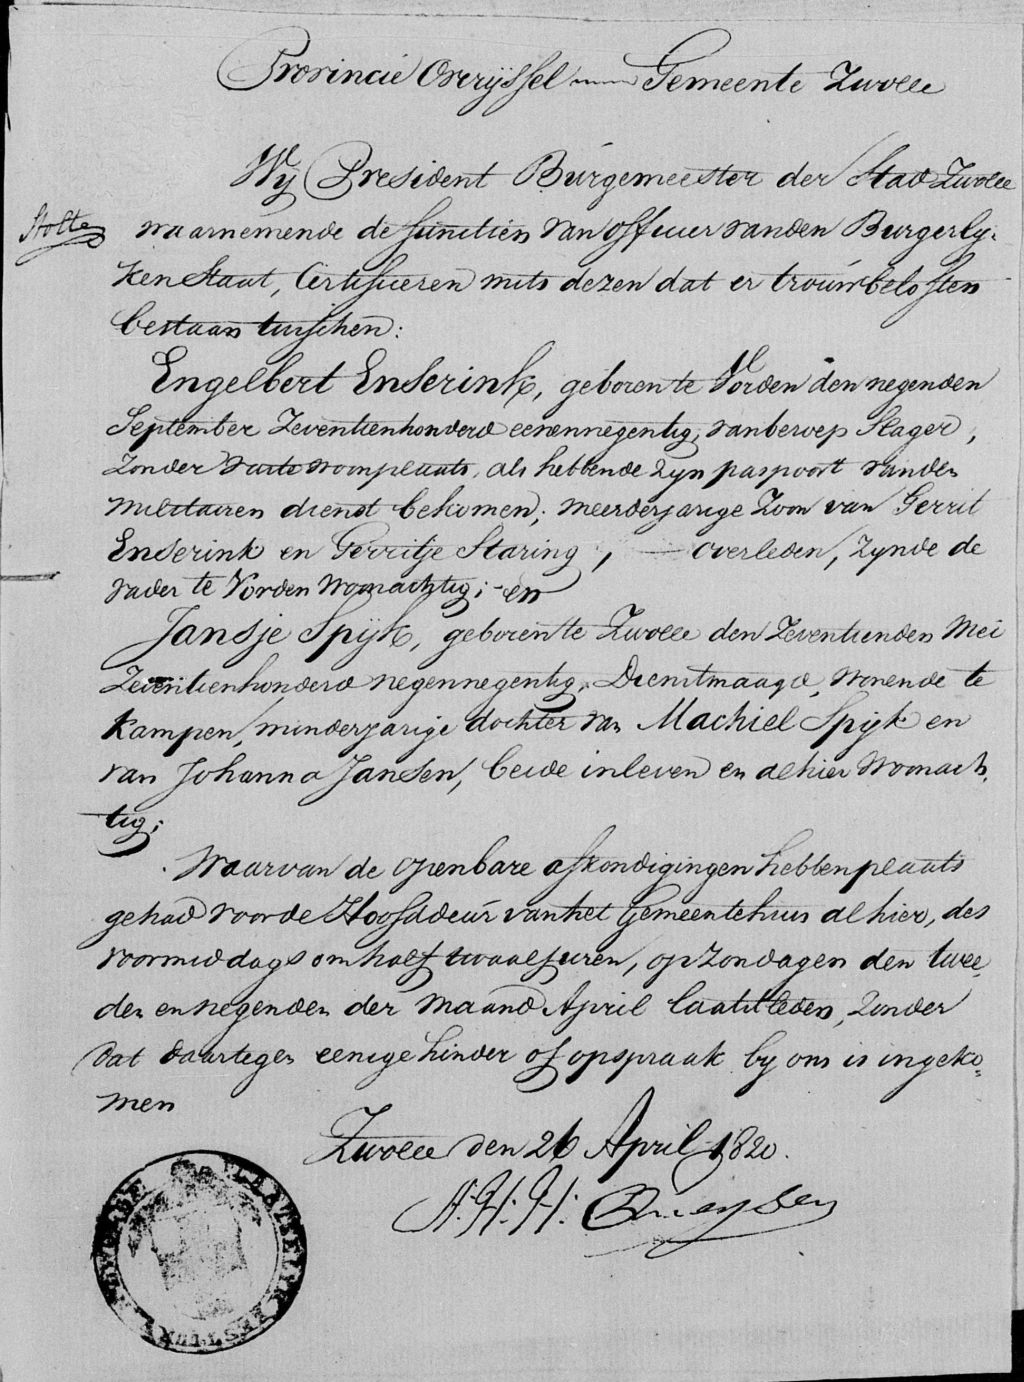 Provincie Overyssel Gemeente Zwolle
Wy President Burgemeester der Stad Zwolle
Stolte
waarnemende de functien van officier vanden Burgerly-
ken Staat, Certificeren mits dezen dat er trouwbeloften
bestaan tusschen:
Engelbert Enserink, geboren te Vorden den negenden
September Zeventienhonderd eenennegentig, van beroep Slager,
Zonder vaste woonplaats, als hebbende zyn paspoort vanden
Militairen dienst bekomen; meerderjarige Zoon van Gerrit
Enserink en Gerritje Staring, — overleden, zynde de
vader te Vorden Woonachtig; en
Jansje Spyk, geboren te Zwolle den Zeventienden Mei
Zeventienhonderd negennegentig, Dienstmaagd, Wonende te
Kampen, minderjarige dochter van Machiel Spyk en
van Johanna Jansen, beide in leven en alhier Woonach-
tig;
Waarvan de openbare afkondigingen hebben plaats
gehad voor de Hoofddeur van het Gemeentehuis alhier, des
voormiddags om half twaalf uren, op Zondagen den twee
den en negenden der Maand April laatstleden, Zonder
dat daartegen eenige hinder of opspraak by ons is ingeko=
men
Zwolle den 26 April 1820.
A: H: H:
PLAATSELYK BESTUUR